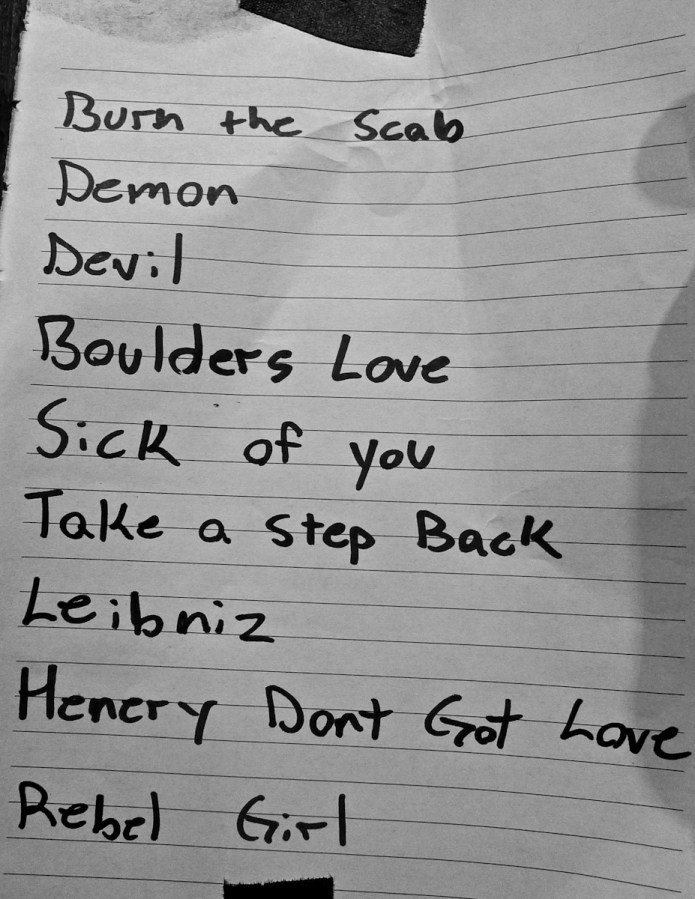 Burn the Scab
Demon
Devil
Boulders Love
Sick of you
Take a step Back
Leibniz
Henery Dont Got Love
Rebel Girl